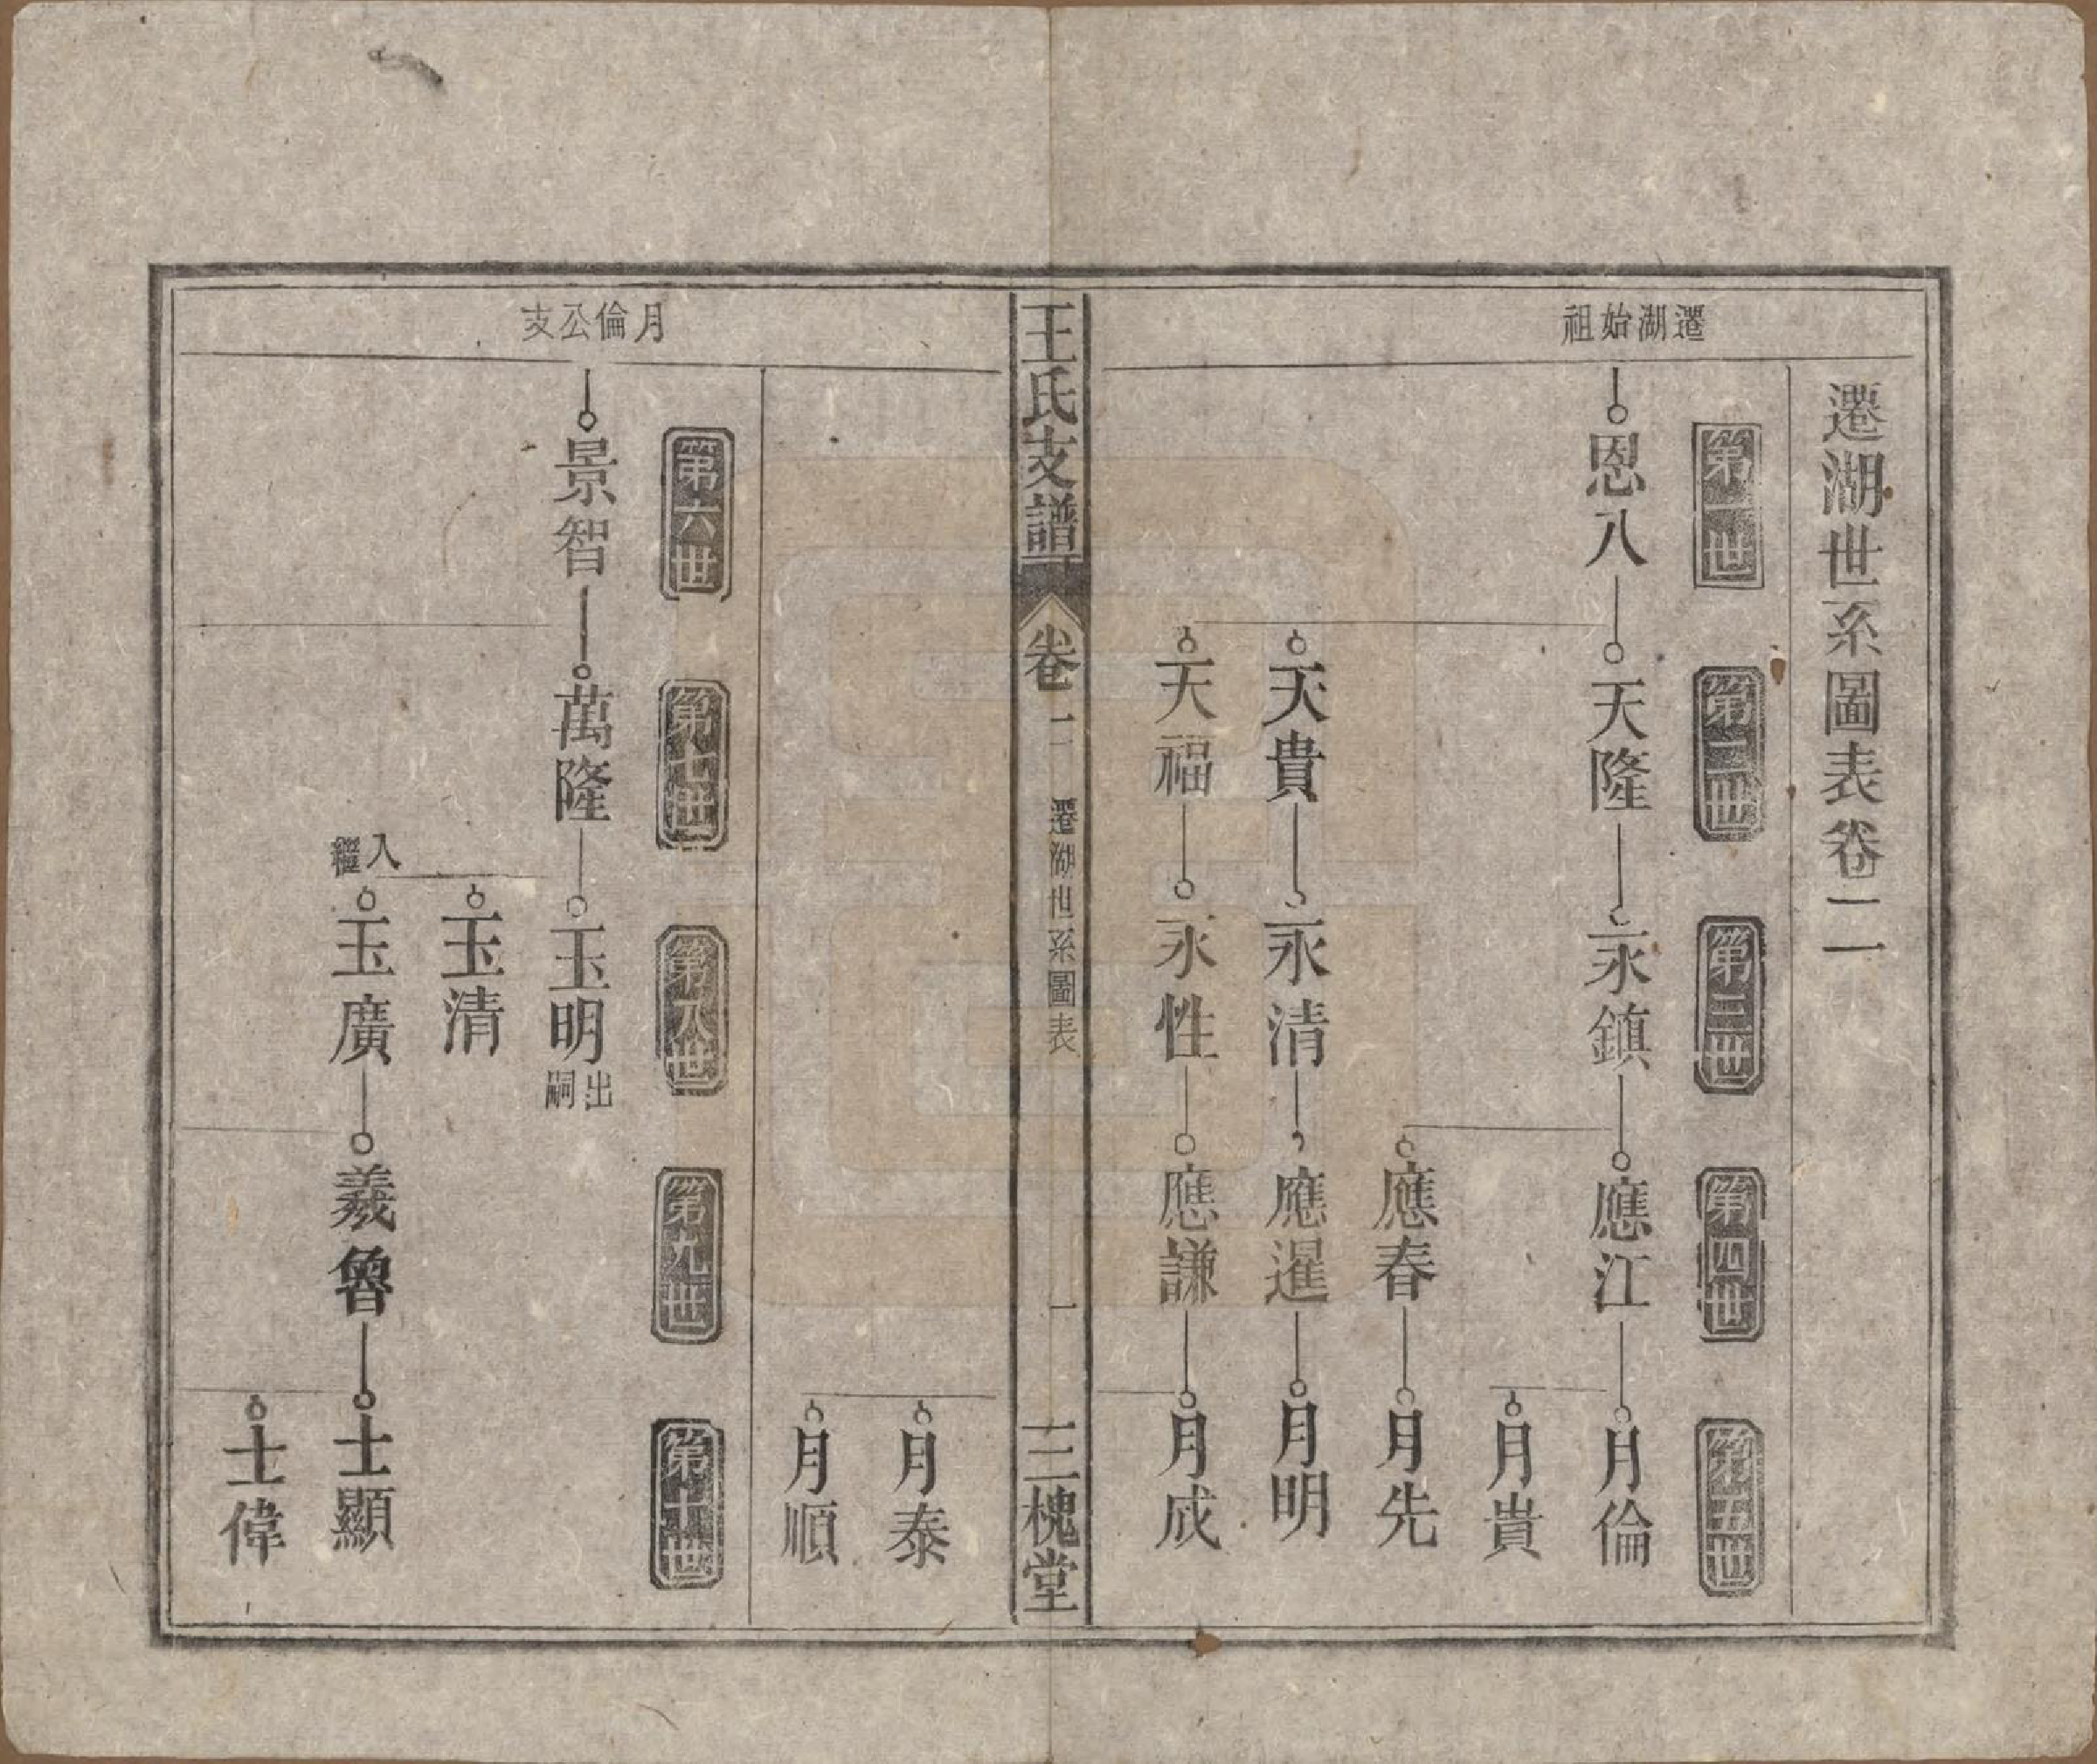 遷湖世系圖表卷二
遷湖始祖
第一世
第二世
第三世
第四世
第五世
恩八
天隆
永鎮
應江
月倫
月貴
應春
月先
天貴
永清
應暹
月明
天福
永性
應謙
月成
王氏支譜
卷二
遷湖世系圖表
一
三槐堂
月泰
月順
月倫公支
第六世
第七世
第八世
第九世
第十世
景智
萬隆
玉明
出嗣
玉清
入繼
玉廣
羲魯
士顯
士偉